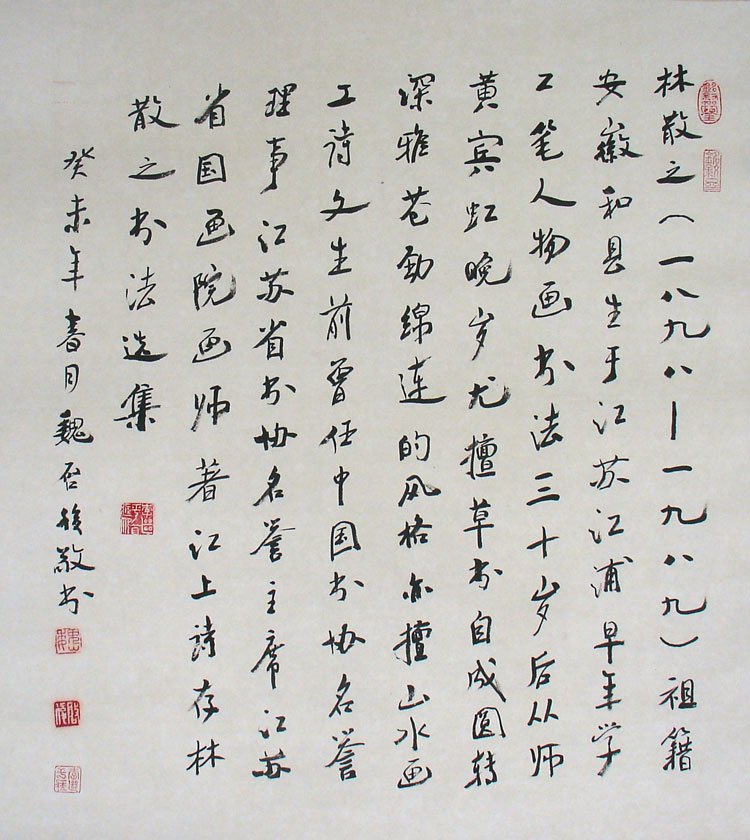 林散之(一八九八—一九八九)祖籍
安徽和县生于江苏江浦早年学
工笔人物画书法三十岁后从师
黄宾虹晚岁尤擅草书自成圆转
深雅苍劲绵连的风格亦擅山水画
工詩文生前曾任中国书协名誉
理事江苏省书协名誉主席江苏
省国画院画师著江上詩存林
散之书法选集
癸未年春月魏启後敬书